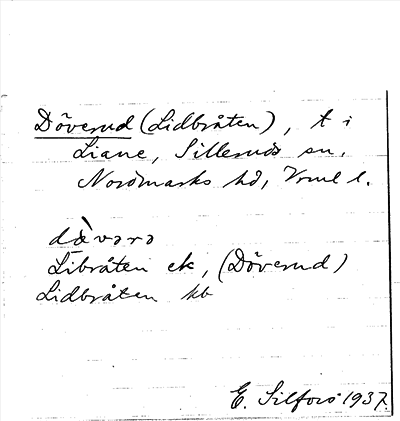 Döverud (Lidbråten), t i
Liane, Silleruds sn,
Nordmarks hd, Vrml l.
dǿ̀vərə
Libråten ek, (Döverud)
Lidbråten kb
E. Silfors 1937.